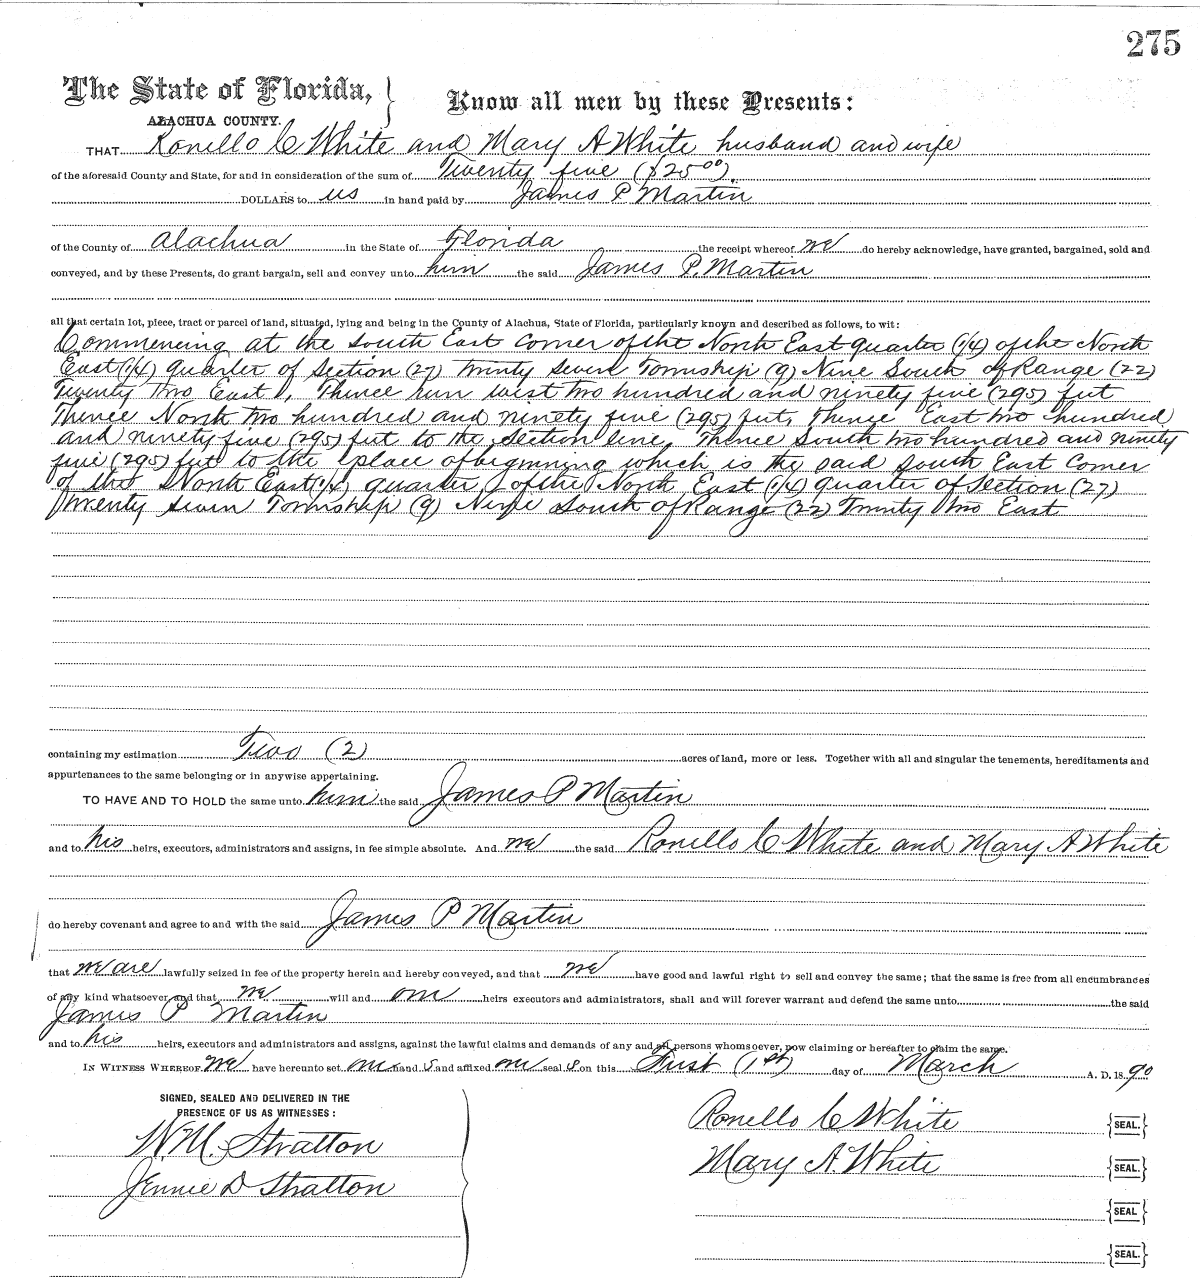 275
The State of Florida, }
ALACHUA COUNTY.
Know all men by these Presents:
THAT Ronello C White and Mary A White husband and wife
of the aforesaid County and State, for and in consideration of the sum of Twenty five ($25 00).
DOLLARS to us in hand paid by James P Martin
of the County of Alachua in the State of Florida the receipt whereof we do hereby acknowledge, have granted, bargained, sold and
conveyed, and by these Presents, do grant bargain, sell and convey unto him the said James P. Martin
all that certain lot, piece, tract or parcel of land, situated, lying and being in the County of Alachua, State of Florida, particularly known and described as follows, to wit:
Commencing at the South East Corner of the North East quarter (1/4) of the North
East (1/4) quarter of Section (27) Twenty Seven Township (9) Nine South of Range (22)
Twenty Two East, Thence run west two hundred and ninety five (295) feet
Thence North two hundred and ninety five (295) feet, Thence East two hundred
and ninety five (295) feet to the Section line, Thence South two hundred and ninety
five (295) feet to the place of beginning which is the said South East Corner
of the North East (1/4) quarter of the North East (1/4) quarter of Section (27)
Twenty Seven Township (9) Nine South of Range (22) Twenty two East
containing my estimation Two (2) acres of land, more or less. Together with all and singular the tenements, hereditaments and
appurtenances to the same belonging or in anywise appertaining.
TO HAVE AND TO HOLD the same unto him the said James P Martin
and to his heirs, executors, administrators and assigns, in fee simple absolute. And we the said Ronello C White and Mary A White
do hereby covenant and agree to and with the said James P Martin
that we are lawfully seized in fee of the property herein and hereby conveyed, and that we have good and lawful right to sell and convey the same; that the same is free from all encumbrances
of any kind whatsoever and that we will and our heirs executors and administrators, shall and will forever warrant and defend the same unto the said
James P Martin
and to his heirs, executors and administrators and assigns, against the lawful claims and demands of any and all persons whomsoever, now claiming or hereafter to claim the same.
IN WITNESS WHEREOF we have hereunto set our hand s and affixed our seal s on this First (1st) day of March A. D. 18 90
SIGNED, SEALED AND DELIVERED IN THE
PRESENCE OF US AS WITNESSES:
W M Stratton
Jennie D Stratton
Ronello C White {SEAL.}
Mary A. White {SEAL.}
{SEAL}
{SEAL.}